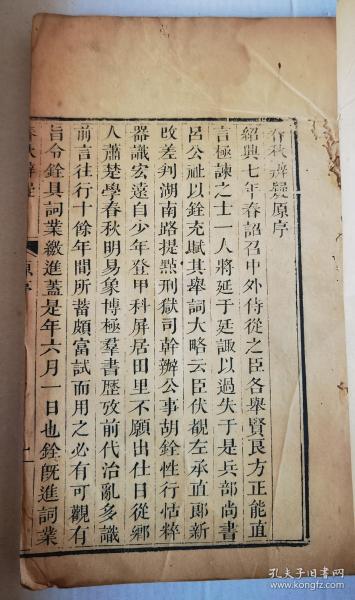 春秋辨疑原序
紹興七年春詔召中外侍從之臣各舉賢良方正能直
言極諫之士一人將延于廷諏以過失于是兵部尚書
呂公祉以銓充賦其舉詞大略云臣伏覩左承直郎新
改差判湖南路提㸃刑獄司幹辦公事胡銓性行恬粹
器識宏遠自少年登甲科屏居田里不願出仕日從鄉
人蕭楚學春秋明易象博極羣書歴攷前代治亂多識
前言往行十餘年間所蓄頗富試而用之必有可觀有
旨令銓具詞業繳進蓋是年六月一日也銓旣進詞業
春秋辨疑
原序
一
孔夫子旧书网